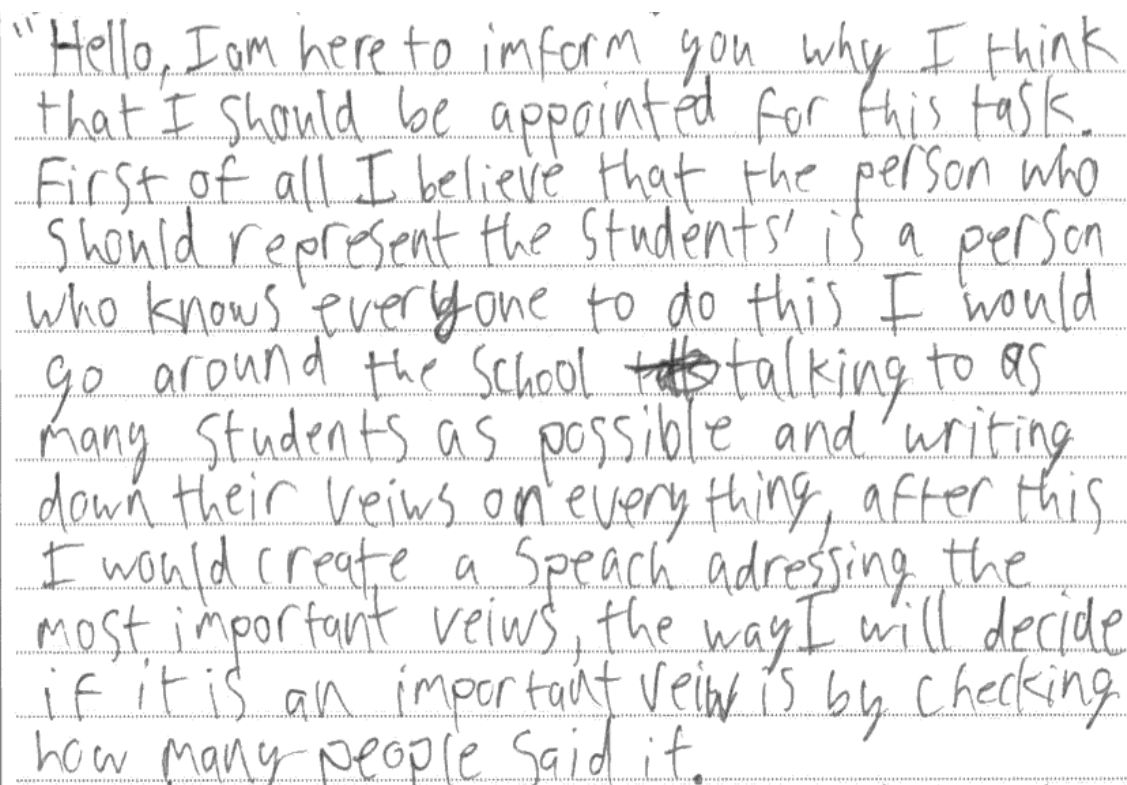 "Hello, I am here to imform you why I think
that I should be appointed for this task.
First of all I believe that the person who
should represent the students' is a person
who knows everyone to do this I would
go around the school talking to as
many students as possible and writing
down their veiws on everything, after this
I would create a speach adressing the
most important veiws, the way I will decide
if it is an important veiw is by checking
how many people said it.